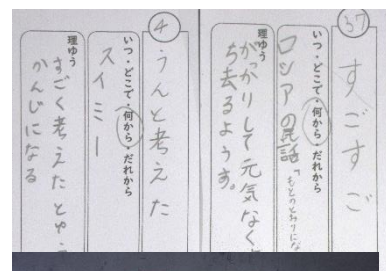 37
すごすご
いつ・どこで・何から・だれから
ロシアの民話「もとのとおりにな
理ゆう
がっかりして元気なく
ち去るようす。
4
うんと考えた
いつ・どこで・何から・だれから
スイミー
理ゆう
すごく考えたとゆう
かんじになる